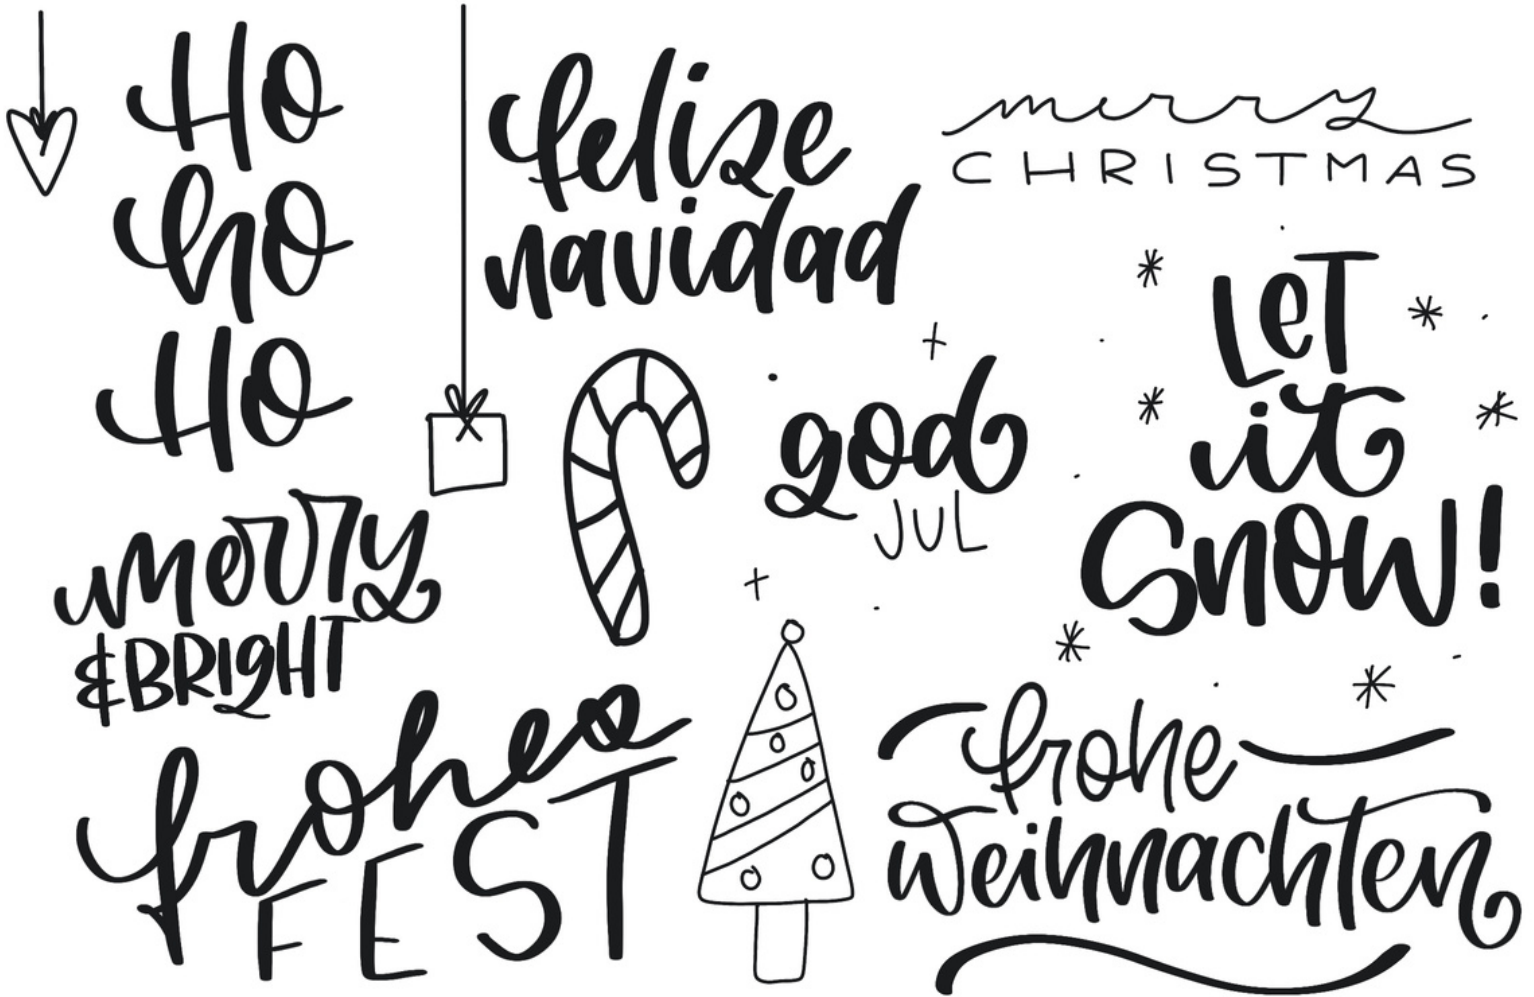 Ho
ho
Ho
felize
navidad
merry
CHRISTMAS
LeT
it
Snow!
god
JUL
merry
& BRIGHT
frohes
FEST
frohe
weihnachten